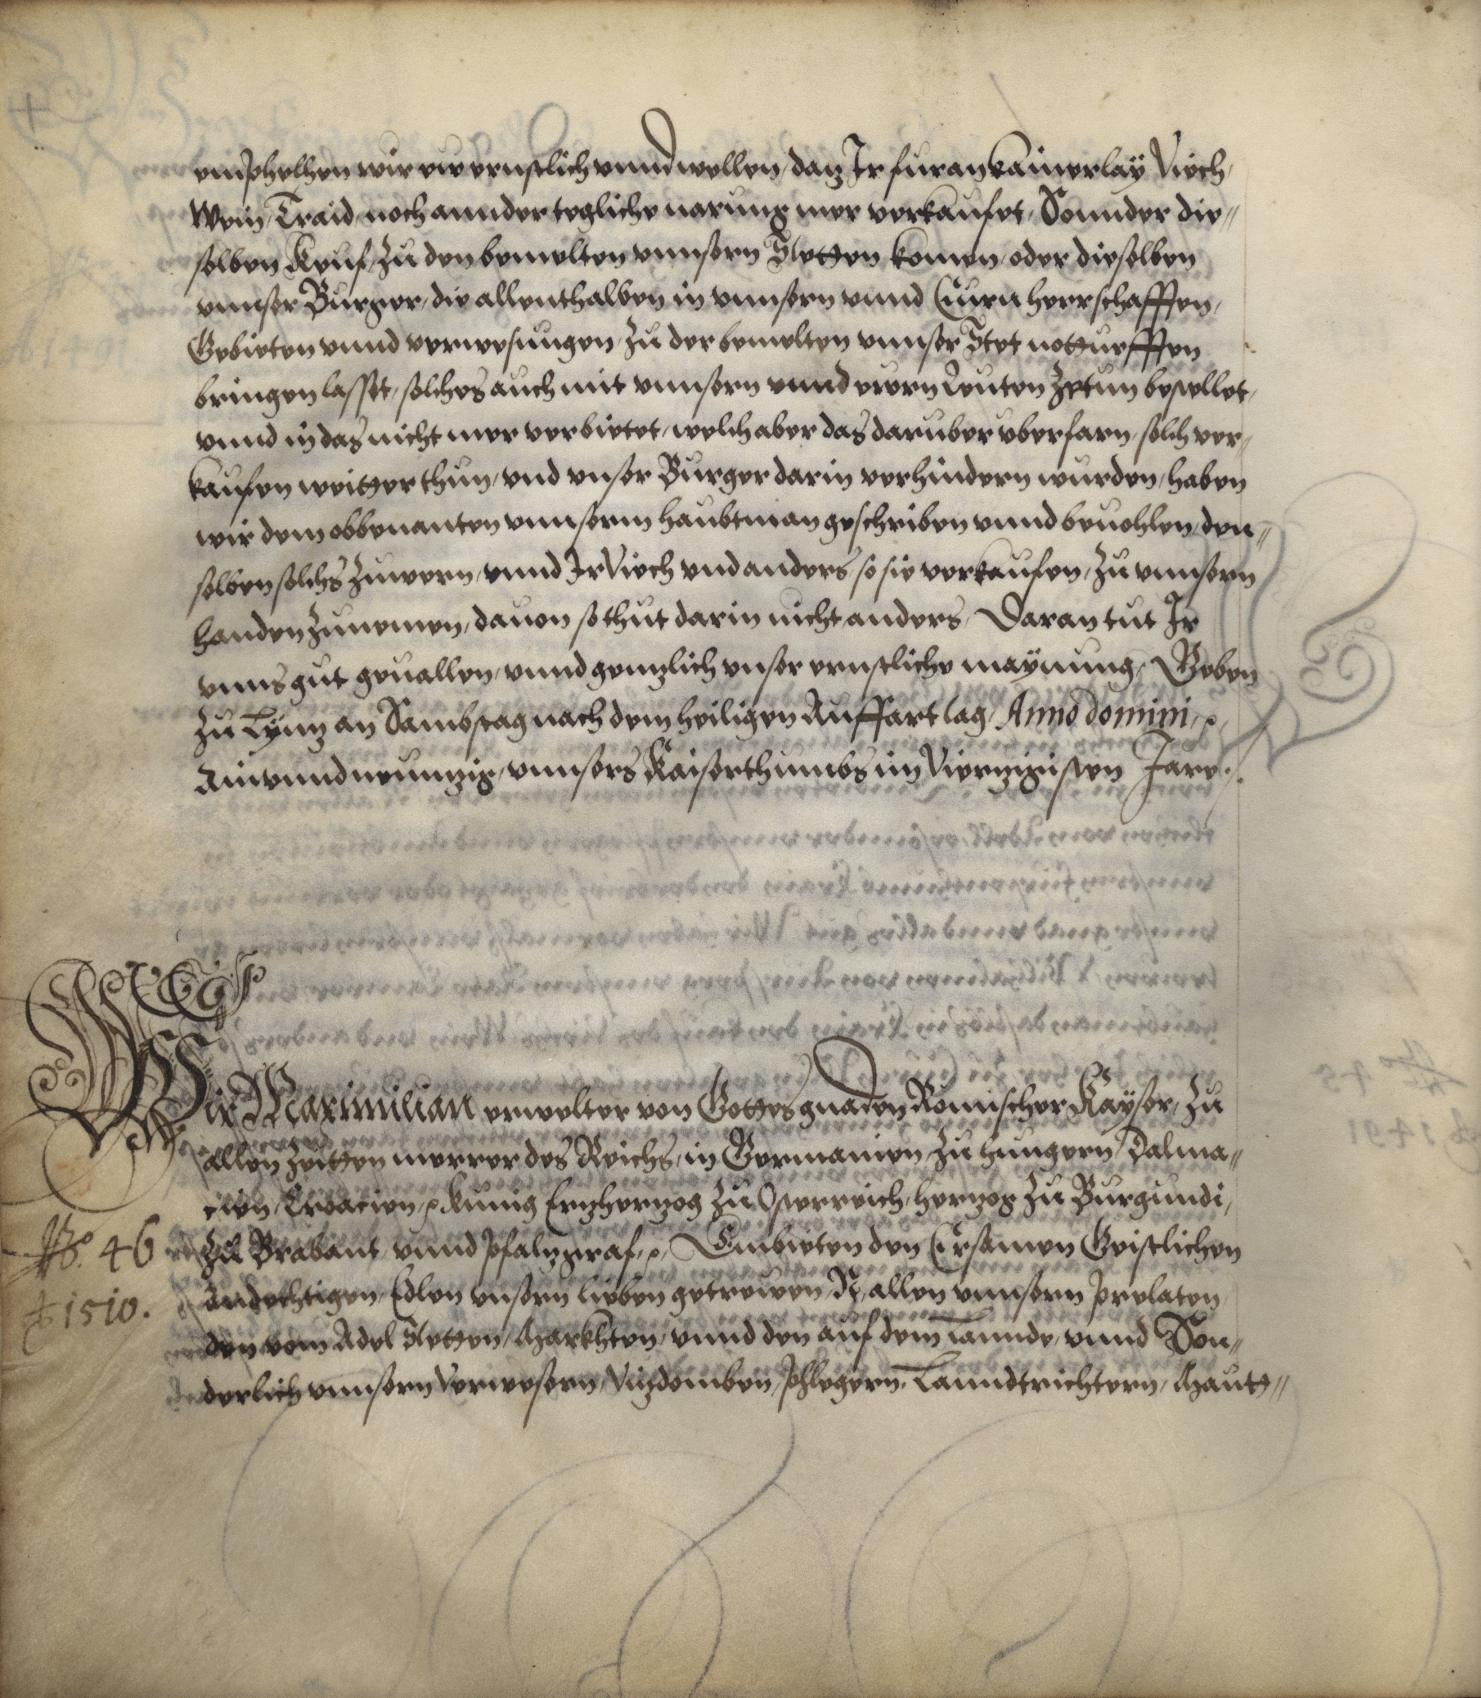 emphelhen wir ew ernstlich vnnd wellen, daz Ir furan kainerlay Viech,
Wein, Traid, noch annder tegliche narung mer verkaufet, Sonnder die¬
selben Keuf, zu den bemelten vnnsern Stetten komen, oder dieselben
vnnser Burger, die allenthalben in vnnsern vnnd Eurn herrschafften,
Gebieten vnnd verwesungen, zu der bemelten vnnser Stet notturfften
bringen lasset, solches auch mit vnnsern vnnd ewrn Leuten zetun bestellet,
vnnd in das nicht mer verbietet, welch aber das daruber vberfarn, solch ver¬
kaufen weitter thun, vnd vnser Burger darin verhindern wurden, haben
wir dem obbenanten vnnserm haubtman geschriben vnnd beuohlen, den¬
selben solchs zuwern, vnnd Ir Viech vnd anders, so sie verkaufen, zu vnnsern
handen zunemen, dauon so thut darin nicht anders, Daran tut Ir
vnns gut geuallen, vnnd genzlich vnser ernstliche maynung, Geben
zu Lynnz an Sambstag nach dem heiligen Auffart tag, Anno domini,
Ainvnndneunzig, vnnsers Kaiserthumbs im Vierzigisten Jare.
Wir Maximilian erwelter von Gottes gnaden Romischer Kayser, zu
allen zeitten merrer des Reichs, in Germanien, zu hungern, Dalma¬
cien, Croacien, kunig, Erzherzog zu Osterreich, herzog zu Burgundi,
zu Brabant, vnnd Pfalzgraf, Embieten den Ersamen Geistlichen
No. 46
Andechtigen, Edlen vnsern lieben getrewen, N, allen vnnsern Prelaten
1510.
den vom Adel Stetten, Markhten, vnnd den auf dem Lannde, vnnd Son¬
derlich vnnsern Verwesern, Vizdomben, Phlegern, Lanndtrichtern, Mautt¬